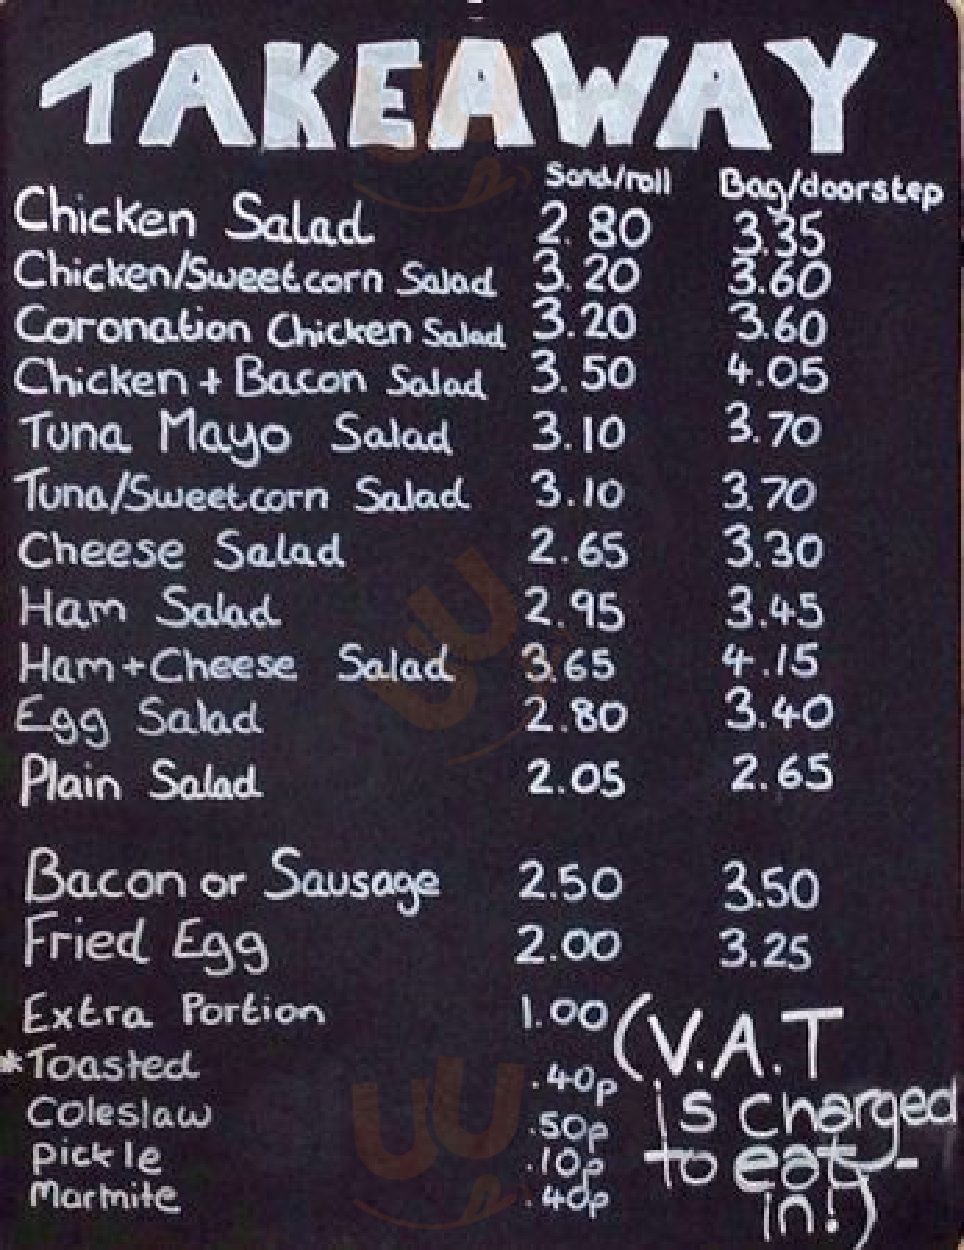 TAKEAWAY
Sand/roll Bag/doorstep
Chicken Salad 2.80 3.35
Chicken/Sweetcorn Salad 3.20 3.60
Coronation Chicken Salad 3.20 3.60
Chicken + Bacon Salad 3.50 4.05
Tuna Mayo Salad 3.10 3.70
Tuna/Sweetcorn Salad 3.10 3.70
Cheese Salad 2.65 3.30
Ham Salad 2.95 3.45
Ham+Cheese Salad 3.65 4.15
Egg Salad 2.80 3.40
Plain Salad 2.05 2.65
Bacon or Sausage 2.50 3.50
Fried Egg 2.00 3.25
Extra Portion 1.00
*Toasted .40p
Coleslaw .50p
Pickle .10p
Marmite .40p
(V.A.T
is charged
to eat-
in!)